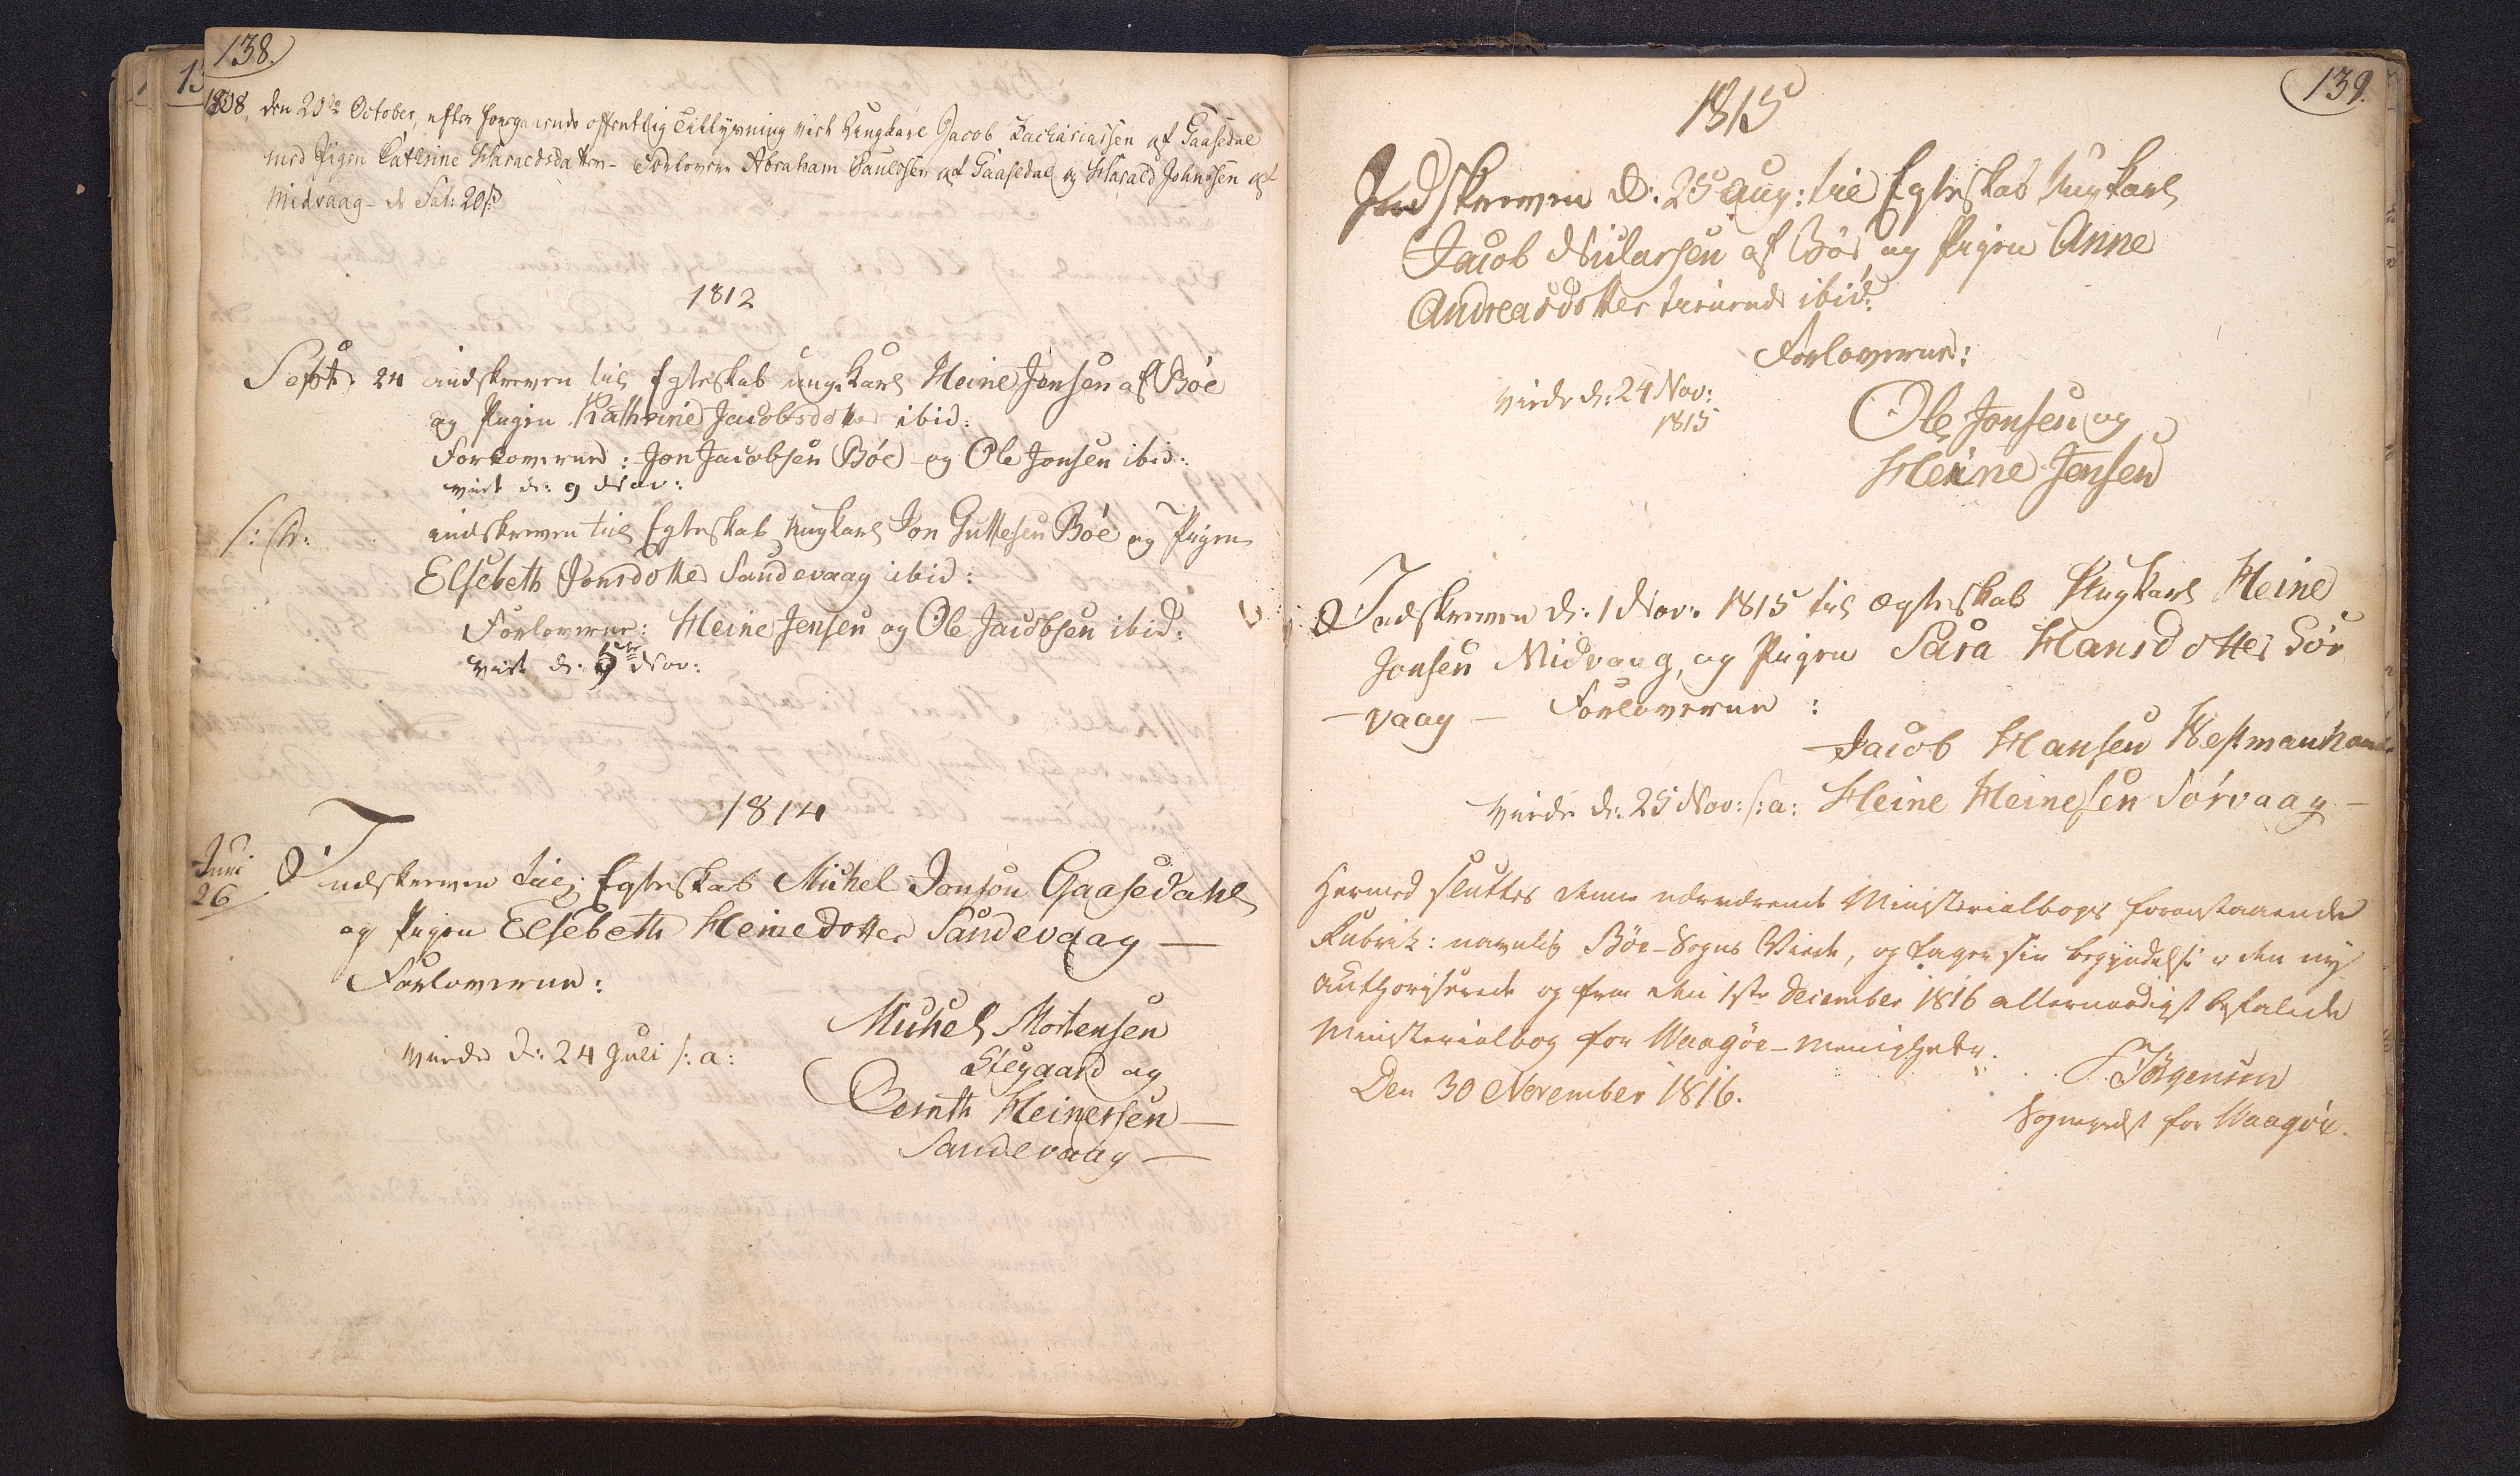 138.
1808. den 20de October, efter foregaaende offentlig Tillysning viet Ungkarl Jacob Zachariassen af Gaasedal
med Pigen Cathrine Haraldsdatter - Forlovere Abraham Paulssen af Gaasedal og Harald Johnssen af
Midvaag - d Sal: 20 s
1812
Septr 24 indskreven til Egteskab ungkarl Heine Jensen af Bøe
og Pigen Kathrine Jacobsdotter ibid:
Forloverne: Jon Jacobsen Bøe og Ole Jonsen ibid:
viet d: 9 Nov:
indskreven til Egteskab ungkarl Jon Guttesen Bøe og Pigen
Elsebeth Jonsdotter Sandevaag ibid:
Forloverne: Heine Jensen og Ole Jacobsen ibid:
viet d: 9 Nov:
1814
Juni
26
Indskreven til Egteskab Michel Jonson Gaasedahl
og Pigen Elsebeth Heinedotter Sandevaag —
Forloverne:
Michel Mortensen
Stegaard og
viede d: 24 Juli s: a:
Bernth Heinersen —
Sandevaag —
139.
1815
Indskreven d: 25 Aug: til Egteskab Ungkarl
Jacob Niclassen af Bøe og Pigen Anne
Andreasdotter tienende ibid:
Forloverne:
Viede d: 24 Nov:
1815
Ole Jonsen og
Heine Jensen
Indskreven d: 1 Nov: 1815 til Ægteskab Ungkarl Heine
Jonsen Midvaag, og Pigen Sara Hansdotter Sør
-vaag — Forloverne:
Jacob Hansen Westmanhavn
Viede d: 25 Nov: s: a: Heine Heinesen Sørvaag —
Hermed sluttes denne nærværende Ministerialbogs foranstaaende
Rubrik: navnlig Bøe-Sogns Viede, og tager sin begyndelse i den ny
authoriserede og fra den 1ste December 1816 allernaadigst befalede
Ministerialbog for Waagøe-Menigheder.
Den 30 November 1816.
Jørgensen
Sognepræst for Waagøe.